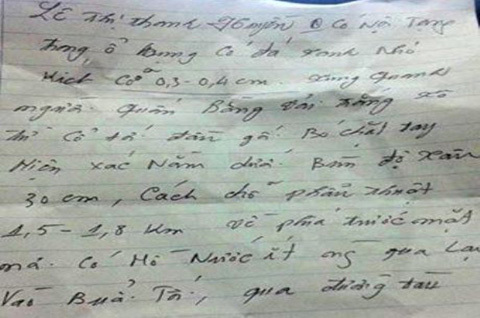 Lê Thị thanh 96 Có Nội Tạng
trong ổ bụng Có đá xanh Nhỏ
Kích Cỡ 0,3-0,4cm. xung quanh
người. Quấn Bằng vải trắng xô
thi Cổ đầu gối. Bó chặt tay
Hiện xác Nằm dưới Bùn độ sâu
30 cm, Cách chỗ phẫu thuật
1,5 - 1,8 Km về phía trước mặt
mà. Có Hố Nước ít qua Lại
Vào Buổi Tối, qua đường tàu